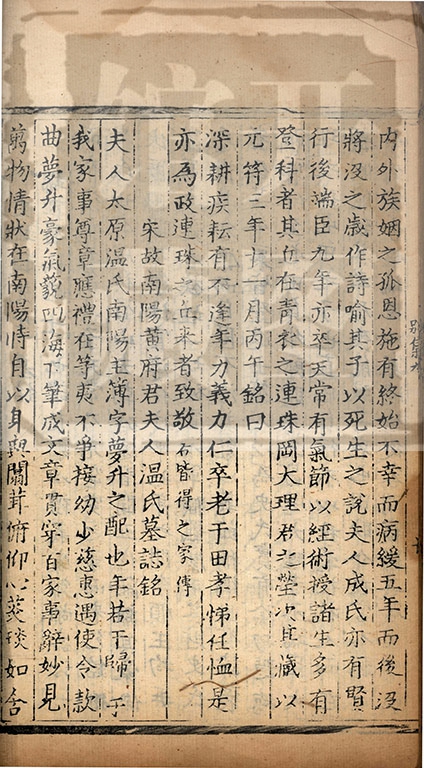 内外族姻之孤恩施有終始不幸而病緩五年而後没
將没之歲作詩喻其子以死生之說夫人成氏亦有賢
行後端臣九年亦卒天常有氣節以經術授諸生多有
登科者其丘在青衣之連珠岡大理君之塋次且藏以
元符三年十一月丙午銘曰
深耕疾耘有不逢年力義力仁卒老于田孝悌任恤是
亦為政連珠之丘來者致敬石皆得之家傳
宋故南陽黄府君夫人溫氏墓誌銘
夫人太原溫氏南陽主簿字夢升之配也年若干歸于
我家事尊章應禮在等夷不爭接幼少慈惠遇使令款
曲夢升豪氣藐四海下筆成文章貫穿百家事辭妙見
萬物情狀在南陽恃自以身與闒茸俯仰心羮琰如舍
别集九